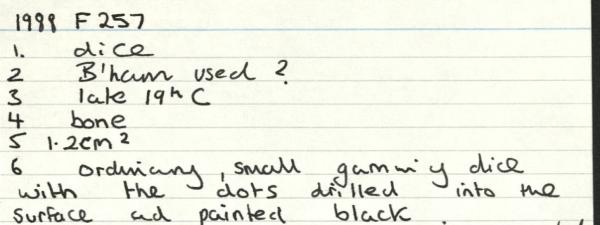 1988 F 257
1. dice
2 B'ham used ?
3 late 19th C
4 bone
5 1.2cm²
6 ordinary, small gaming dice
with the dots drilled into the
surface ad painted black